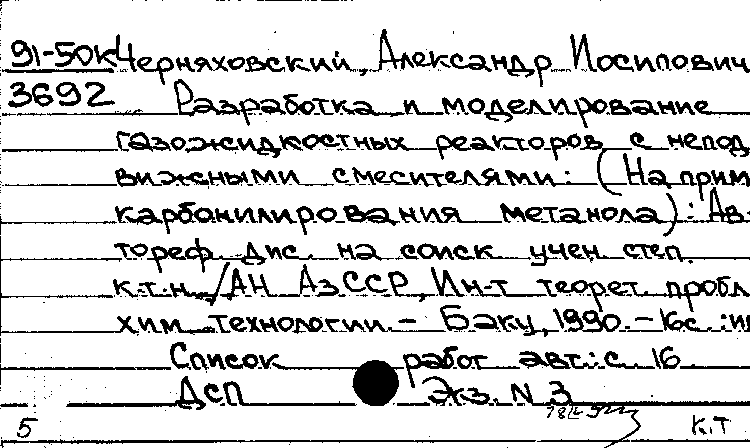 91-50к Черняховский, Александр Иосипович
3692 Разработка и моделирование
газожидкостных реакторов с непод
вижными смесителями: (На прим
карбонилирования метанола): Ав-
тореф. дис. на соиск. учен. степ.
к.т.н. / АН АзССР, Ин-т теорет. пробл
хим. технологии. - Баку, 1990. - 16с. : ил
Список работ авт.: с. 16
ДСП Экз. N 3
5 К.Т